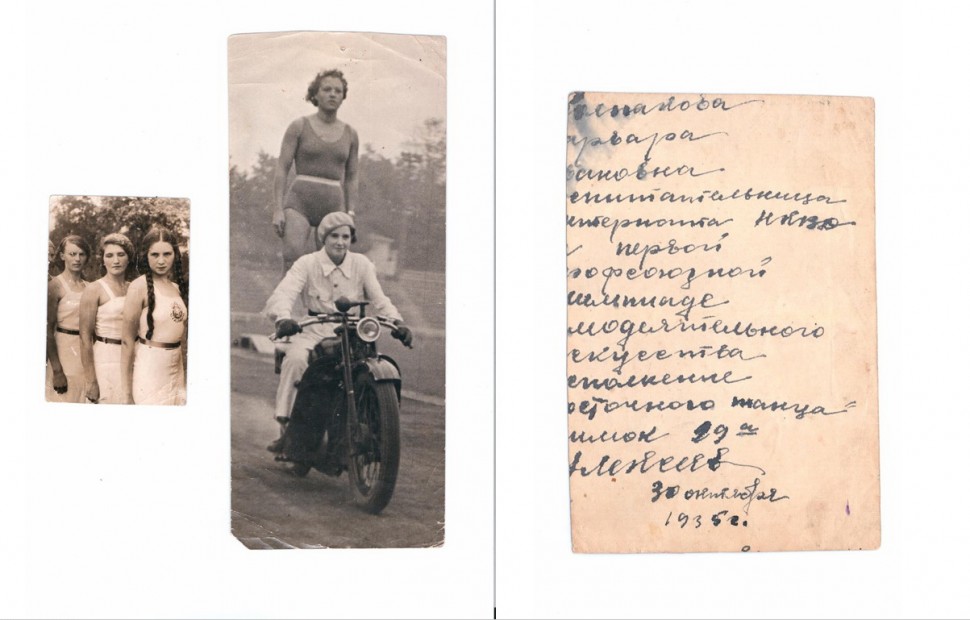 рвара
ановна
спитательница
нтерната НКВД
первой
рофсоюзной
лимпиаде
модеятельного
скусства
сполнение
осточного танца"
имок 29а
Алексеев
30 октября
1935 г.